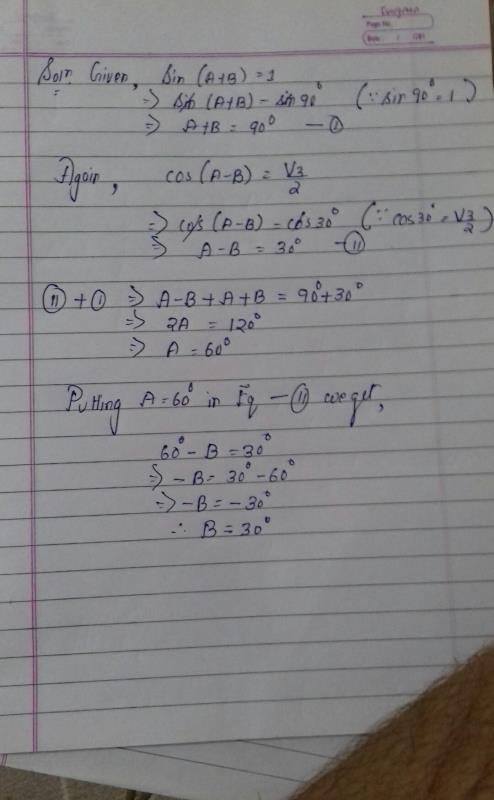 Page No.
Date / /201
Soln. Given, Sin (A+B) = 1
=> sin (A+B) = sin 90° (∵ sin 90° = 1)
=> A+B = 90° — (I)
Again, cos (A-B) = √3/2
=> cos (A-B) = cos 30° (∵ cos 30° = √3/2)
=> A-B = 30° — (II)
(II) + (I) => A-B+A+B = 90°+30°
=> 2A = 120°
=> A = 60°
Putting A = 60° in Eq — (II) we get,
60° - B = 30°
=> -B = 30° - 60°
=> -B = -30°
∴ B = 30°